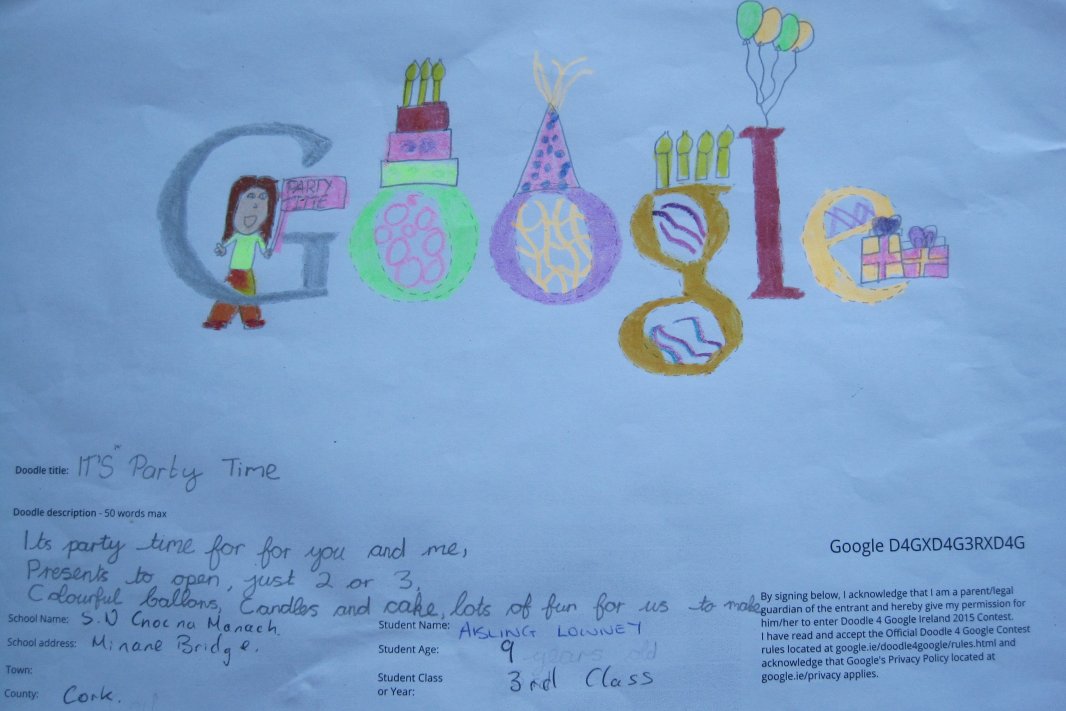 Google
PARTY
TIME
Doodle title: IT'S Party Time
Doodle description - 50 words max
Its party time for for you and me,
Presents to open, just 2 or 3,
Colourful ballons, Candles and cake, lots of fun for us to make
School Name: S.N Cnoc na Manach
School address: Minane Bridge.
Town:
County: Cork.
Student Name: AISLING LOWNEY
Student Age: 9 years old
Student Class
or Year: 3rd Class
Google D4GXD4G3RXD4G
By signing below, I acknowledge that I am a parent/legal
guardian of the entrant and hereby give my permission for
him/her to enter Doodle 4 Google Ireland 2015 Contest.
I have read and accept the Official Doodle 4 Google Contest
rules located at google.ie/doodle4google/rules.html and
acknowledge that Google's Privacy Policy located at
google.ie/privacy applies.